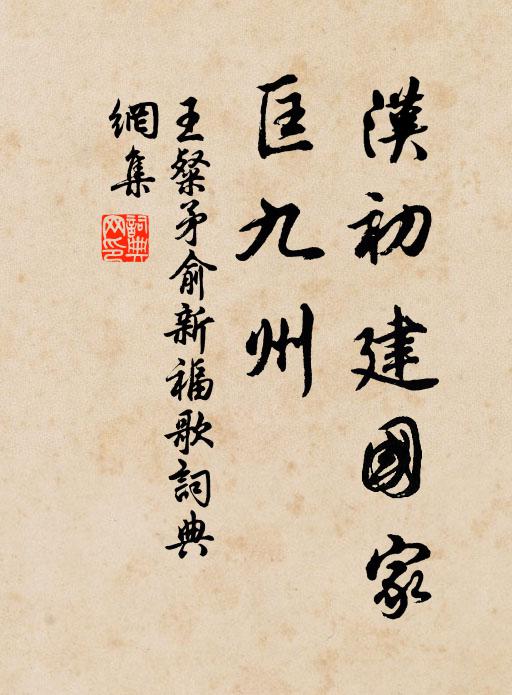 漢初建國家
匡九州
王粲矛俞新福歌詞典
網集
詞典
网印